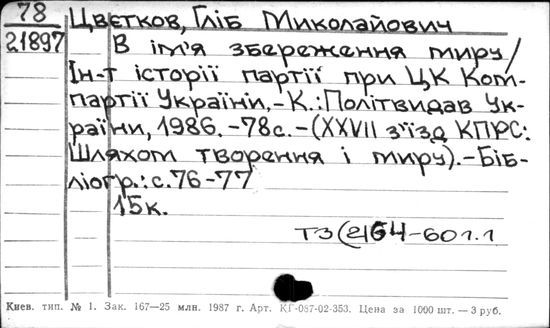 78
21897
Цвєтков, Гліб Миколайович
В ім'я збереження миру /
Ін-т історії партії при ЦК Ком-
партії України,-К.: Політвидав Ук-
раїни, 1986.-78с.-(XXVII з'їзд КПРС:
Шляхом творення і миру).-Біб-
ліогр.: с.76-77
15к.
Т3(2)64-60 1.1
Киев. тип. № 1. Зак. 167—25 млн. 1987 г. Арт. КГ-087-02-353. Цена за 1000 шт. — 3 руб.